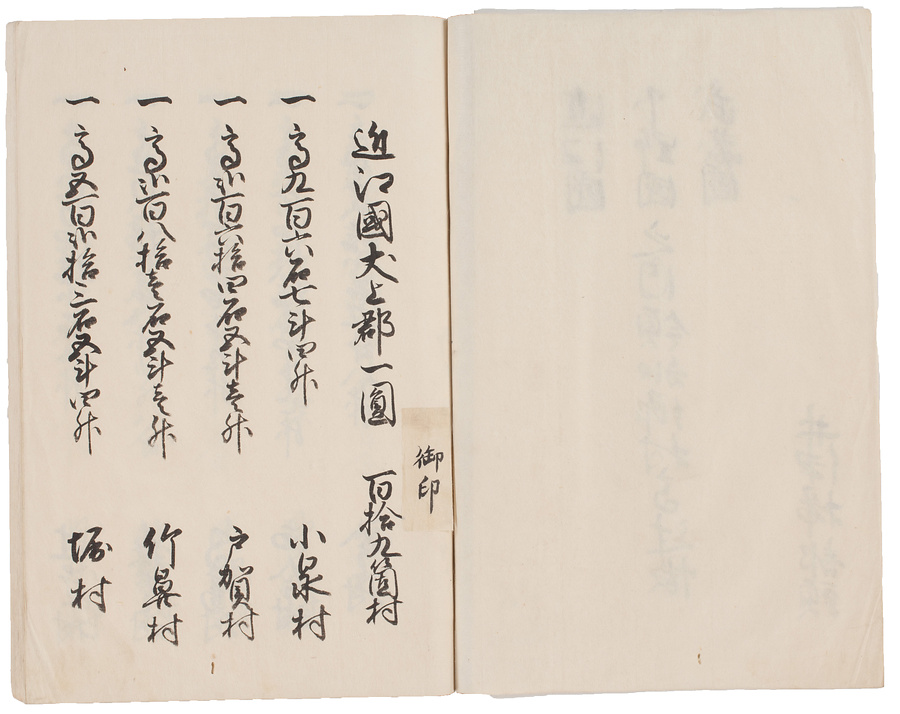 御印
近江國犬上郡一圓　百拾九箇村
一　高九百六石七斗四升　小泉村
一　高弐百六拾四石五斗壱升　戸賀村
一　高弐百八拾壱石五斗壱升　竹鼻村
一　高五百弐拾三石五斗四升　堀村